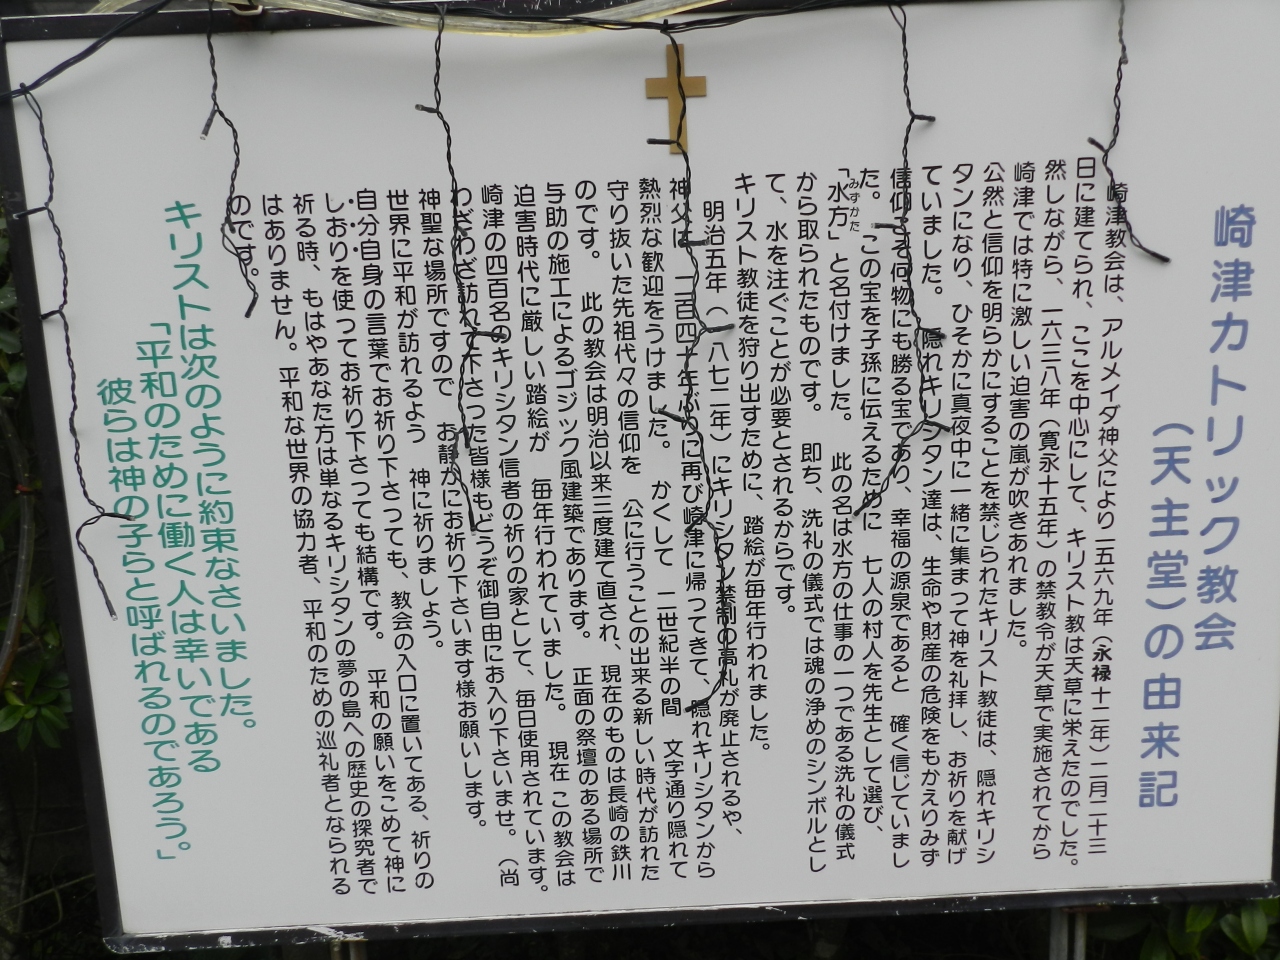 崎津カトリック教会
（天主堂）の由来記
崎津教会は、アルメイダ神父により一五六九年（永禄十二年）二月二十三
日に建てられ、ここを中心にして、キリスト教は天草に栄えたのでした。
然しながら、一六三八年（寛永十五年）の禁教令が天草で実施されてから
崎津では特に激しい迫害の嵐が吹きあれました。
公然と信仰を明らかにすることを禁じられたキリスト教徒は、隠れキリシ
タンになり、ひそかに真夜中に一緒に集まって神を礼拝し、お祈りを献げ
ていました。　隠れキリシタン達は、生命や財産の危険をもかえりみず
信仰こそ何物にも勝る宝であり、幸福の源泉であると　確く信じていまし
た。この宝を子孫に伝えるために　七人の村人を先生として選び、
「水方」と名付けました。　此の名は水方の仕事の一つである洗礼の儀式
みずかた
から取られたものです。　即ち、洗礼の儀式では魂の浄めのシンボルとし
て、水を注ぐことが必要とされるからです。
キリスト教徒を狩り出すために、踏絵が毎年行われました。
明治五年（一八七二年）にキリシタン禁制の高札が廃止されるや、
神父は　二百四十年ぶりに再び崎津に帰ってきて、隠れキリシタンから
熱烈な歓迎をうけました。　かくして　二世紀半の間　文字通り隠れて
守り抜いた先祖代々の信仰を　公に行うことの出来る新しい時代が訪れた
のです。　此の教会は明治以来三度建て直され、現在のものは長崎の鉄川
与助の施工によるゴジック風建築であります。　正面の祭壇のある場所で
迫害時代に厳しい踏絵が　毎年行われていました。　現在　この教会は
崎津の四百名のキリシタン信者の祈りの家として、毎日使用されています。
わざわざ訪れて下さった皆様もどうぞ御自由にお入り下さいませ。（尚
神聖な場所ですので　お静かにお祈り下さいます様お願いします。
世界に平和が訪れるよう　神に祈りましょう。
自分自身の言葉でお祈り下さっても、教会の入口に置いてある、祈りの
しおりを使つてお祈り下さつても結構です。　平和の願いをこめて神に
祈る時、もはやあなた方は単なるキリシタンの夢の島への歴史の探究者で
はありません。平和な世界の協力者、平和のための巡礼者となられる
のです。
キリストは次のように約束なさいました。
「平和のために働く人は幸いである
彼らは神の子らと呼ばれるのであろう。」